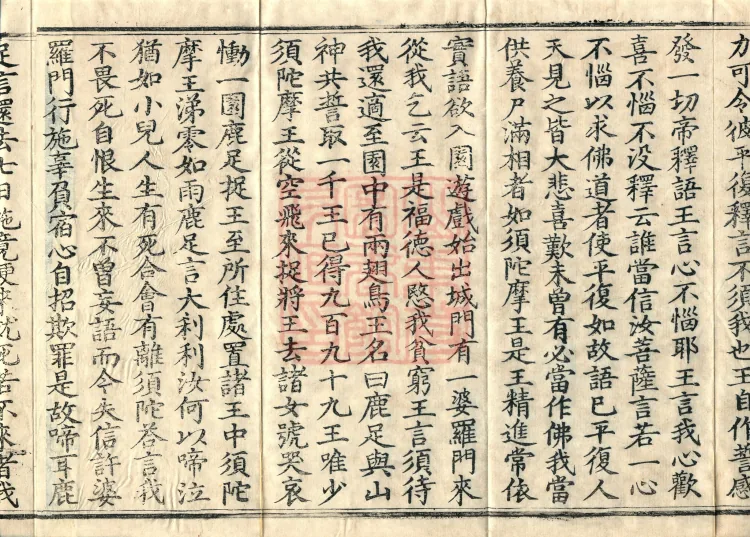 力可令彼平復釋言不須我也王自作誓感
發一切帝釋語王言心不惱耶王言我心歡
喜不惱不没釋云誰當信汝菩薩言若一心
不惱以求佛道者使平復如故語已平復人
天見之皆大悲喜歎未曾有必當作佛我當
供養尸滿相者如須陀摩王是王精進常依
實語欲入園遊戲始出城門有一婆羅門來
從我乞云王是福德人愍我貧窮王言須待
我還適至園中有兩翅鳥王名曰鹿足與山
神共誓取一千王已得九百九十九王唯少
須陀摩王從空飛來捉將王去諸女號哭哀
慟一園鹿足捉王至所住處置諸王中須陀
摩王涕零如雨鹿足言大刹利汝何以啼泣
猶如小兒人生有死合會有離須陀荅言我
不畏死自恨生來不曾妄語而今失信許婆
羅門行施辜負宿心自招欺罪是故啼耳鹿
足言還去七日施竟便來就死若不來者我